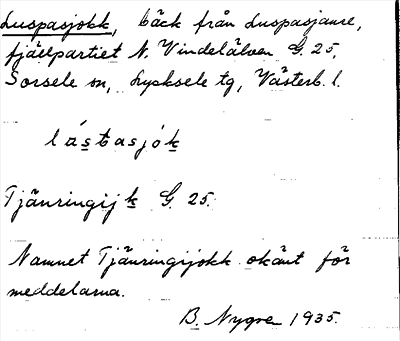 Luspasjokk, bäck från Luspasjaure,
fjällpartiet N. Vindelälven G. 25,
Sorsele sn, Lycksele tg, Västerb. l.
lástasjók
Tjänringijk G. 25.
Namnet Tjänringijokk okänt för
meddelarna.
B. Nygren 1935.